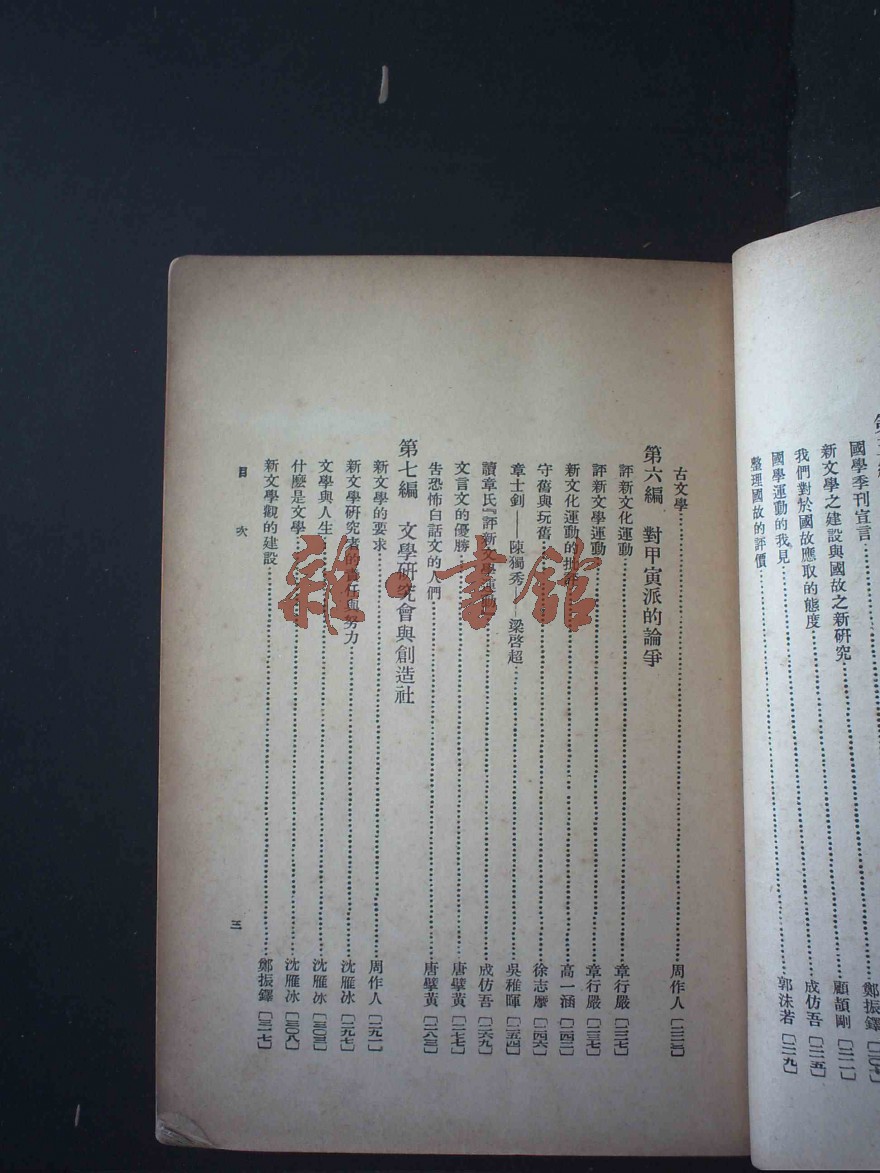 國學季刊宣言
鄭振鐸
新文學之建設與國故之新研究
顧頡剛〔二一一〕
我們對於國故應取的態度
成仿吾〔二一五〕
國學運動的我見
郭沫若〔二一九〕
整理國故的評價
古文學…周作人〔二二三〕
第六編 對甲寅派的論爭
評新文化運動…章行嚴〔二二七〕
評新文學運動…章行嚴〔二三七〕
新文化運動的批評…高一涵〔二四二〕
守舊與玩舊…徐志摩〔二四六〕
章士釗——陳獨秀——梁啓超…吳稚暉〔二五四〕
讀章氏『評新文學運動』…成仿吾〔二六九〕
文言文的優勝…唐擘黃〔二七七〕
告恐怖白話文的人們…唐擘黃〔二八三〕
第七編 文學研究會與創造社
新文學的要求…周作人〔二九一〕
新文學研究者的責任與努力…沈雁冰〔二九七〕
文學與人生…沈雁冰〔三〇三〕
什麼是文學…沈雁冰〔三〇八〕
新文學觀的建設…鄭振鐸〔三一七〕
目次
三
雜·書館